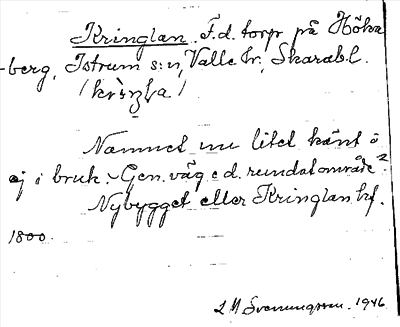 Kringlan. F.d. torp på Höka
-berg, Istrum s:n, Valle hr, Skarab.l.
/krìŋla/
Namnet nu litet känt o
ej i bruk. – Gen. väg e d. rundat område?
Nybygget eller Kringlan hf.
1800.
L M Svenungsson. 1946